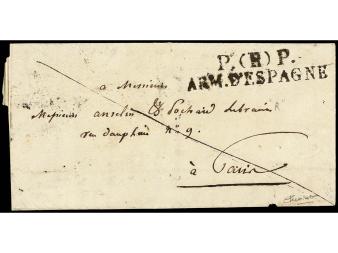 P. (H) P.
ARM. D'ESPAGNE
a Messieurs
Messieurs anselin & Pochard libraire
rue dauphine n° 9.
à Paris